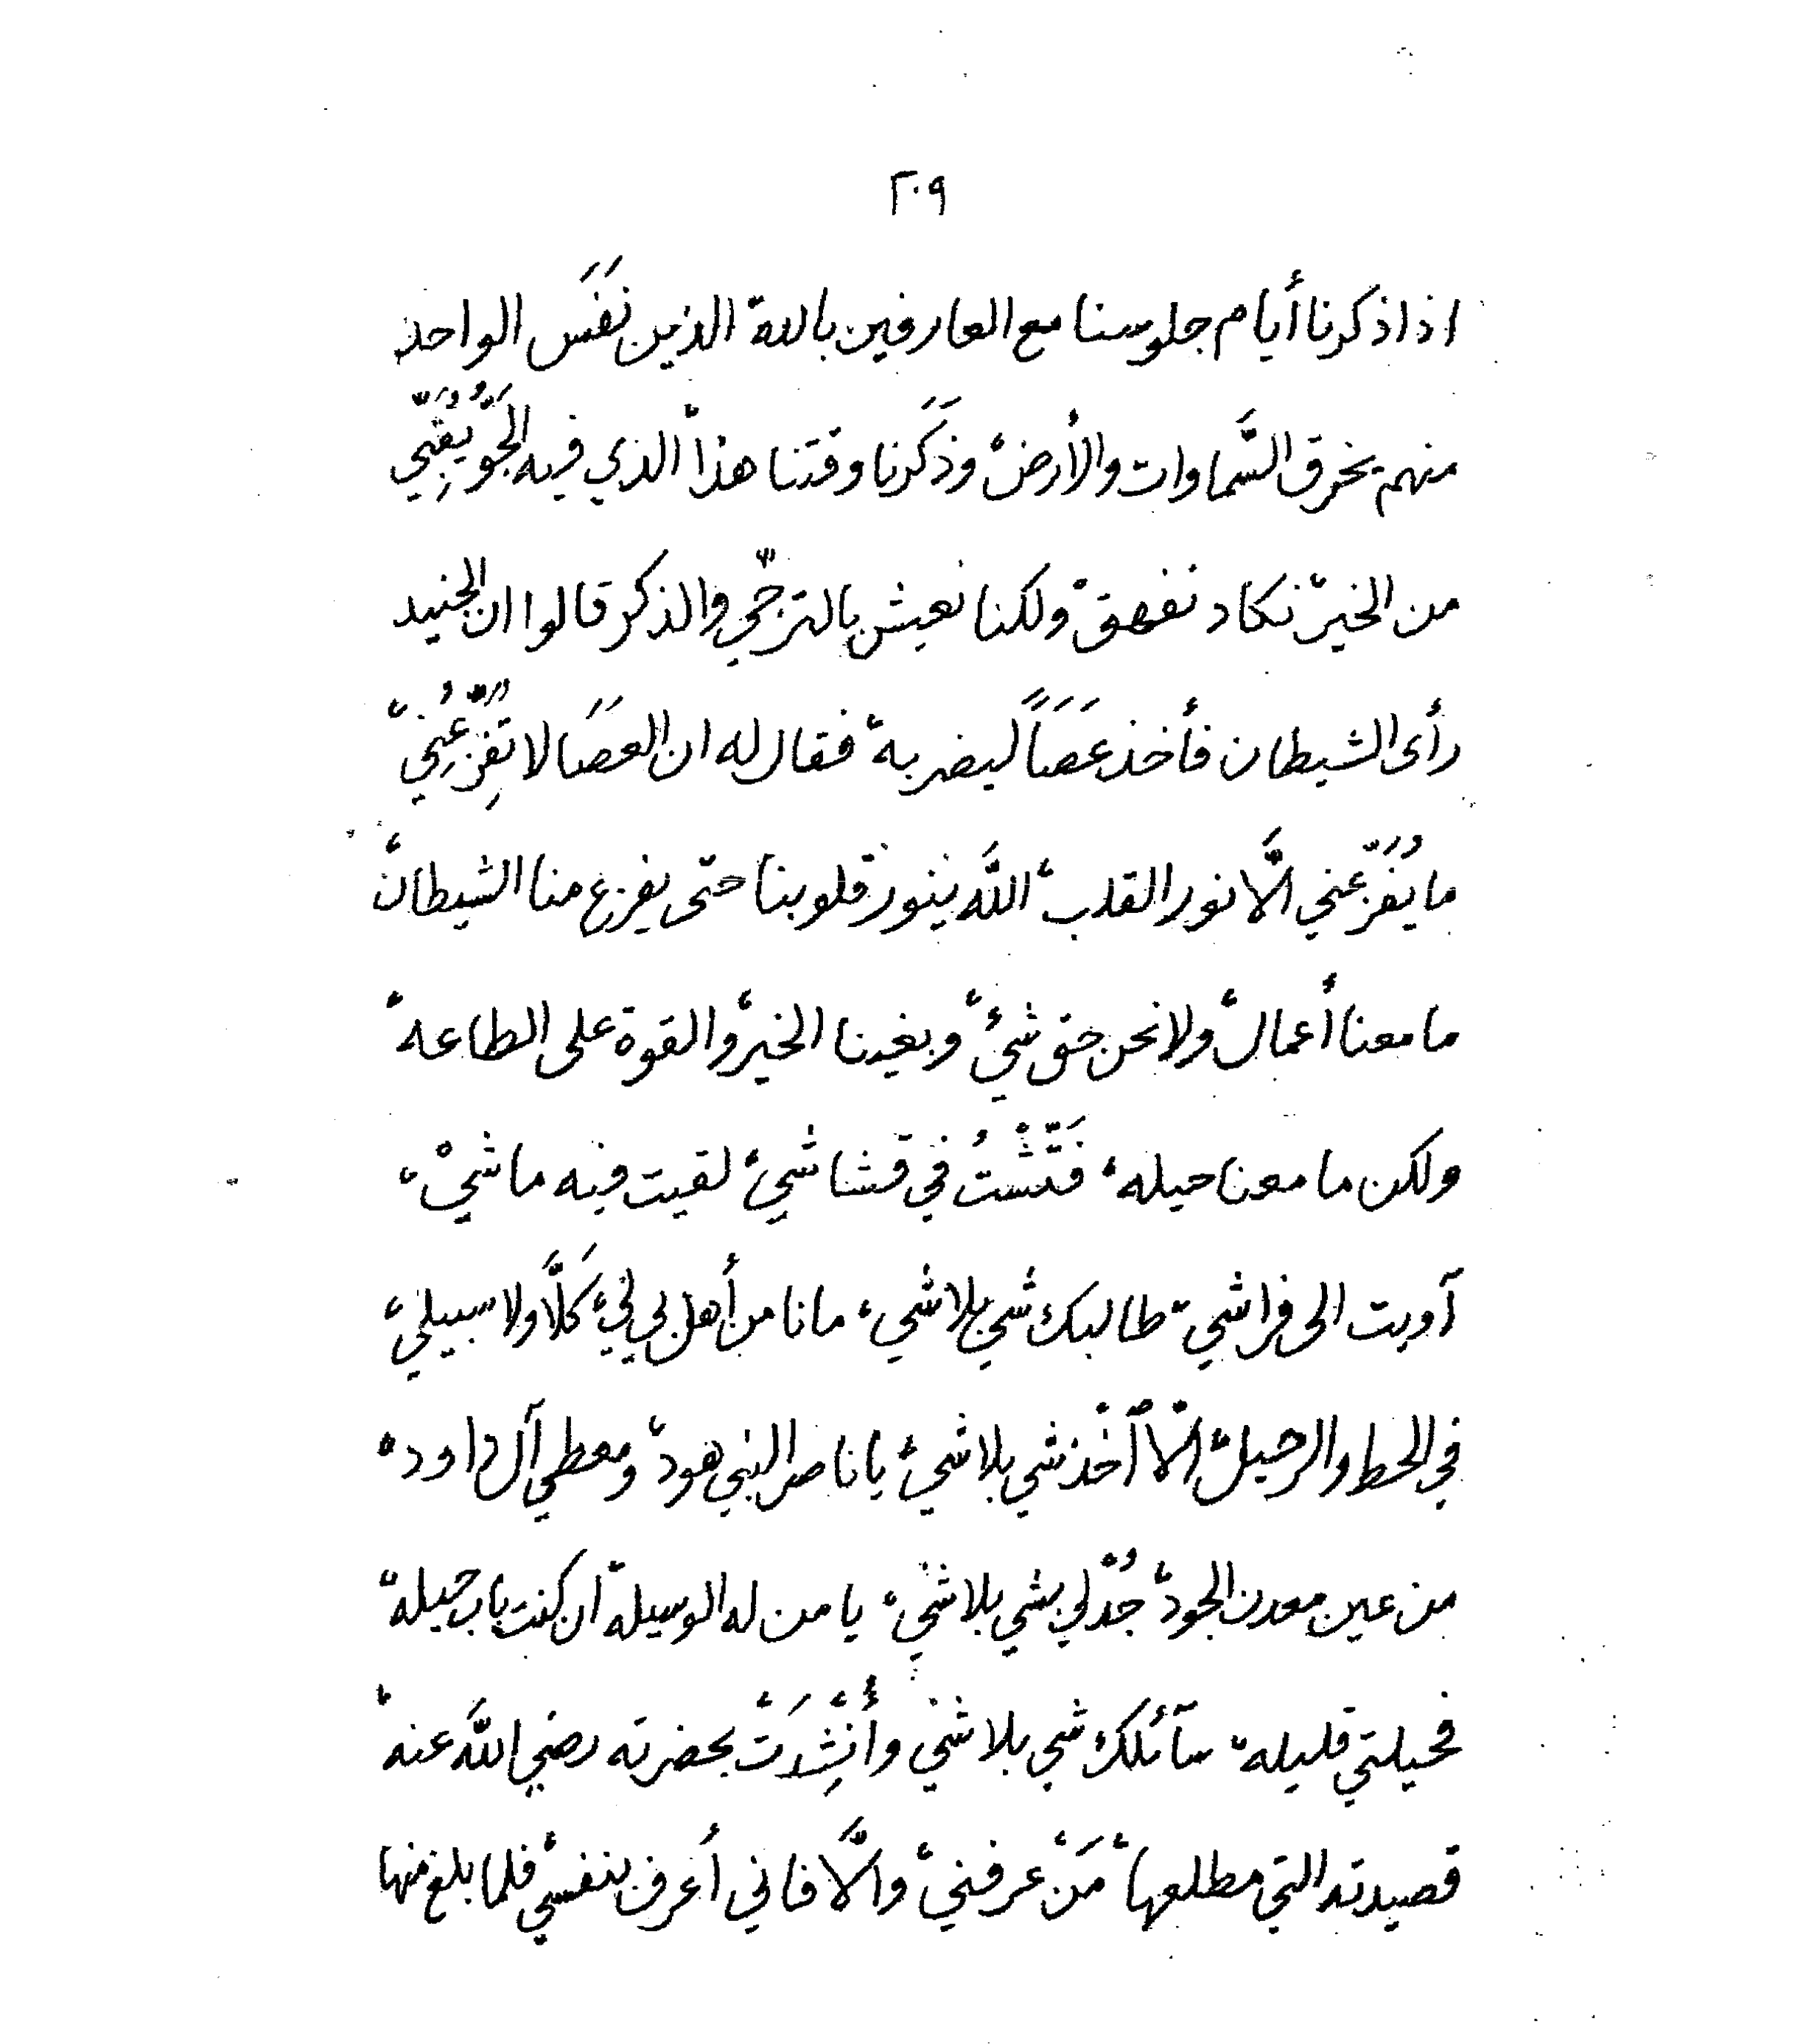 ٢٠٩
اذا ذكرنا أيام جلوسنا مع العارفين بالله الذين نَفَس الواحد
منهم يخرق السَّماوات والأرض، وذَكَرنا وقتنا هذا الذي فيه الجَوُّ يُقَبِّي
من الخير، نكاد نفهق، ولكنا نعيش بالترجّي والذكر قالوا ان الجنيد
رأى الشيطان فأخذ عَصَاً ليضربه، فقال له ان العصَا لا تُفزِّعُني،
ما يُفَزّعني الَّا نور القلب، اللَّه ينور قلوبنا حتى يفزع منا الشيطان،
ما معنا أعمال، ولا نحن حق شيْء، وبغينا الخير، والقوة على الطاعه،
ولكن ما معنا حيله، فَتَّشْتُ في قشاشي، لقيت فيه ماشيْ،
آويت الى فراشي، طالبك شي بلاشي، مانا من أهل بي لي، كَلَّا ولا سبيلي،
في الحط والرحيل، الّا أخْذ شي بلاشي، يا ناصر النبي هود، ومعطي آل داود،
من عين معدن الجود، جُدْ لي بشي بلاشي، يا من له الوسيله، ان كنت باب حيله،
فحيلتي قليله، سآئلك شي بلاشي وأُنْشِدَتْ بحضرته رضي اللَّه عنه،
قصيدته التي مطلعها، مَنْ عرفني، والَّا فاني أعرف بنفسي، فلما بلغ منها